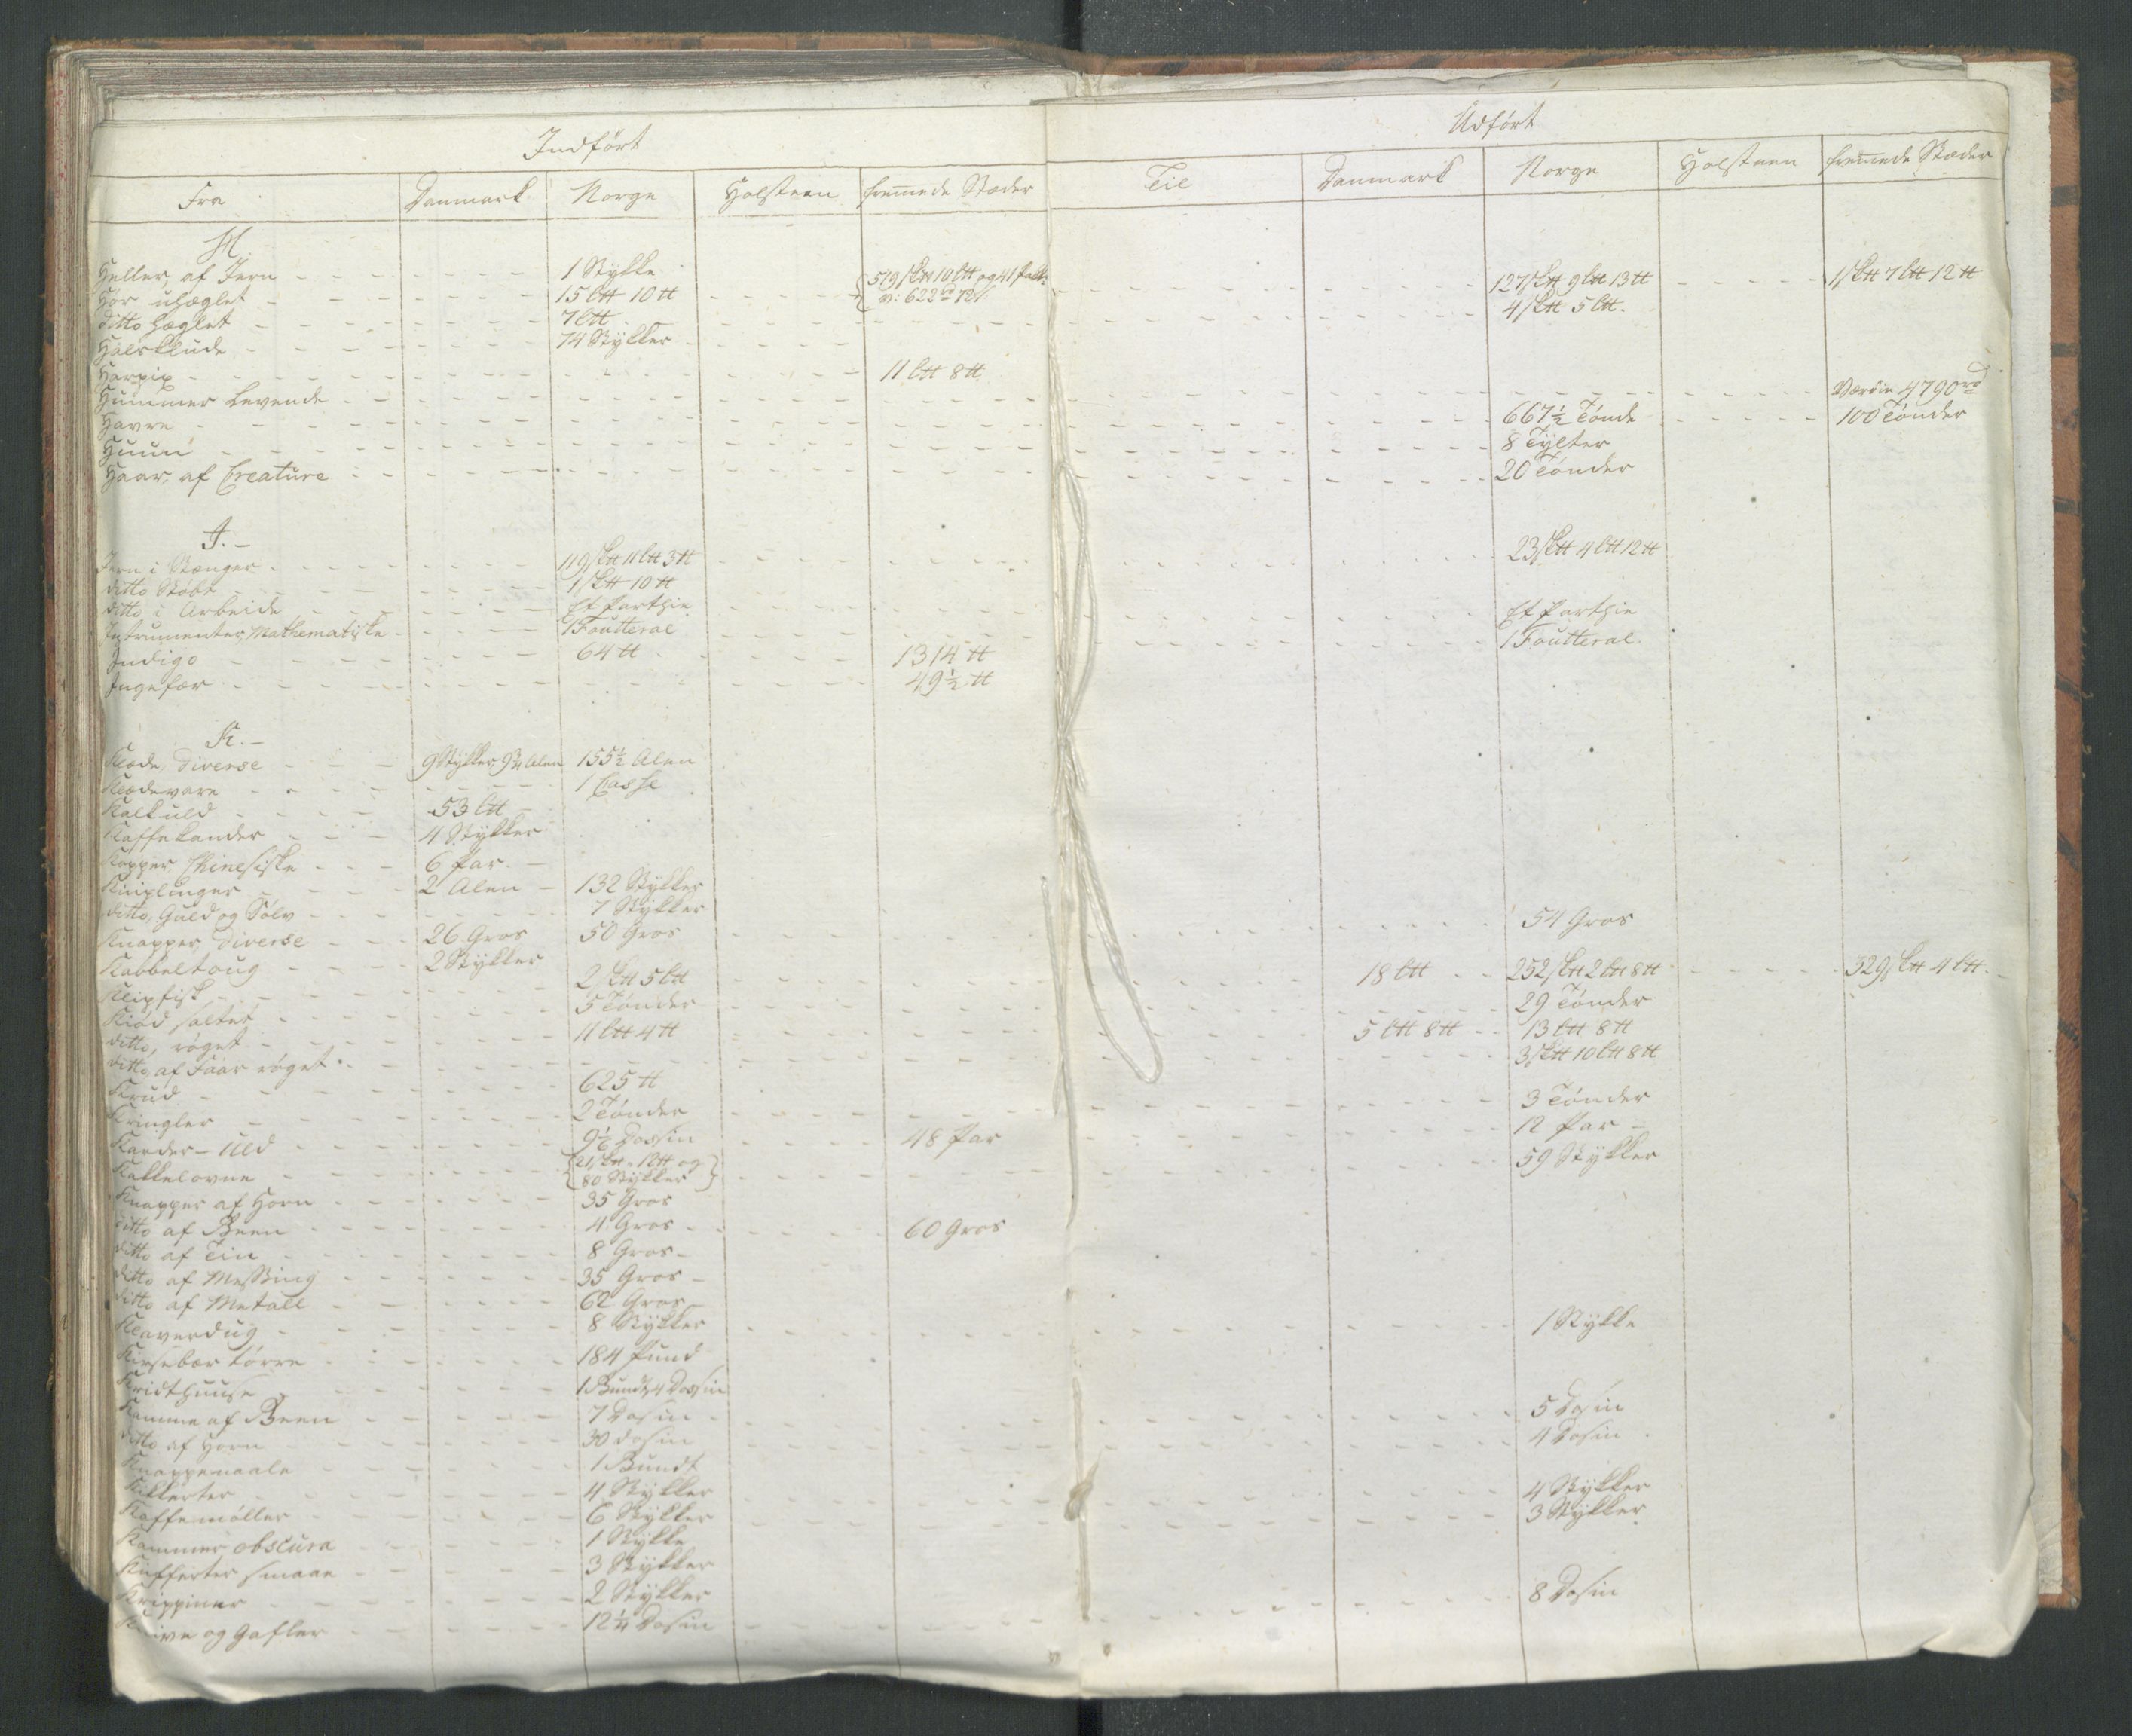 Indført
Fra Danmark Norge Holsteen fremmede Stæder
H.
Heller, af Jern 1 Stykke
Hør uhæglet 15 L℔ 10 ℔ 519 Sk℔ 10 L℔ og 41
ditto hæglet 7 L℔ v: 622 rd 72 s
Halsklude 74 Stykker
Harpix 11 L℔ 8 ℔
Hummer Levende
Havre
Huun
Haar af Creature
J.
Jern i Stænger 119 Sk℔ 11 L℔ 3 ℔
ditto Støbt 1 Sk℔ 10 ℔
ditto i Arbeide Et Parthie
Instrumenter, Mathematiske 1 Foutteral
Indigo 64 ℔ 1314 ℔
Ingefær 49½ ℔
K.
Klæde, diverse 9 Stykker 9¾ Alen 155½ Alen
Klædevare 1 Casse
Kalkuld 53 L℔
Kaffekander 4 Stykker
Kopper Chinesiske 6 Par
Kniplinger 2 Alen 132 Stykker
ditto, Guld og Sølv 7 Stykker
Knapper diverse 26 Gros 50 Gros
Kabbeltoug 2 Stykker
Klipfisk 2 Sk℔ 5 L℔
Kiød saltet 5 Tønder
ditto, røget 11 L℔ 4 ℔
ditto, af Faar røget
Krud 625 ℔
Kringler 2 Tønder
Karder-Uld 9 1/6 Dossin 48 Par
Kakkelovne 21 Sk℔ 12 ℔ og
80 Stykker
Knapper af Horn 35 Gros
ditto af Been 4 Gros 60 Gros
ditto af Tin 8 Gros
ditto af Messing 35 Gros
ditto af Metall 62 Gros
Klaverdug 8 Stykker
Kirsebær tørre 184 Pund
Kridthuuse 1 Bundt, 4 Dossin
Kamme af Been 7 Dosin
ditto af Horn 30 dosin
Knappenaale 1 Bundt
Kikkerter 4 Stykker
Kaffemøller 6 Stykker
Kammer obscura 1 Stykke
Kufferter smaae 3 Stykker
Krippiner 2 Stykker
Knive og Gafler 12¼ Dosin
Udført
Til Danmark Norge Holsteen fremmede Stæder
127 Sk℔ 9 L℔ 13 ℔ 1 Sk℔ 7 L℔ 12 ℔
4 Sk℔ 5 L℔.
Værdie 4790 rd
667½ Tønde 100 Tønder
8 Tylter
20 Tønder
23 Sk℔ 4 L℔ 12 ℔
Et Parthie
1 Foutteral
54 Gros
18 L℔ 252 Sk℔ 2 L℔ 8 ℔ 329 Sk℔ 4 L℔.
29 Tønder
5 L℔ 8 ℔ 13 L℔ 8 ℔
3 Sk℔ 10 L℔ 8 ℔
3 Tønder
12 Par
59 Stykker
1 Stykke
5 Dosin
4 Dosin
4 Stykker
3 Stykker
8 Dosin